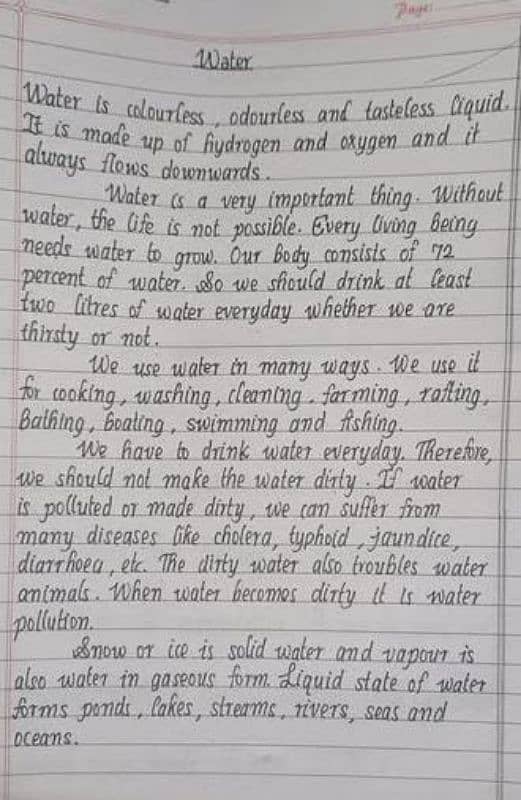 Page:
Water
Water is colourless, odourless and tasteless liquid.
It is made up of hydrogen and oxygen and it
always flows downwards.
Water is a very important thing. Without
water, the life is not possible. Every living Being
needs water to grow. Our Body consists of 72
percent of water. So we should drink at least
two litres of water everyday whether we are
thirsty or not.
We use water in many ways. We use it
for cooking, washing, cleaning, farming, rafting,
Bathing, Boating, swimming and fishing.
We have to drink water everyday. Therefore,
we should not make the water dirty. If water
is polluted or made dirty, we can suffer from
many diseases like cholera, typhoid, jaundice,
diarrhoea, etc. The dirty water also troubles water
animals. When water becomes dirty it is water
pollution.
Snow or ice is solid water and vapour is
also water in gaseous form. Liquid state of water
forms ponds, lakes, streams, rivers, seas and
oceans.